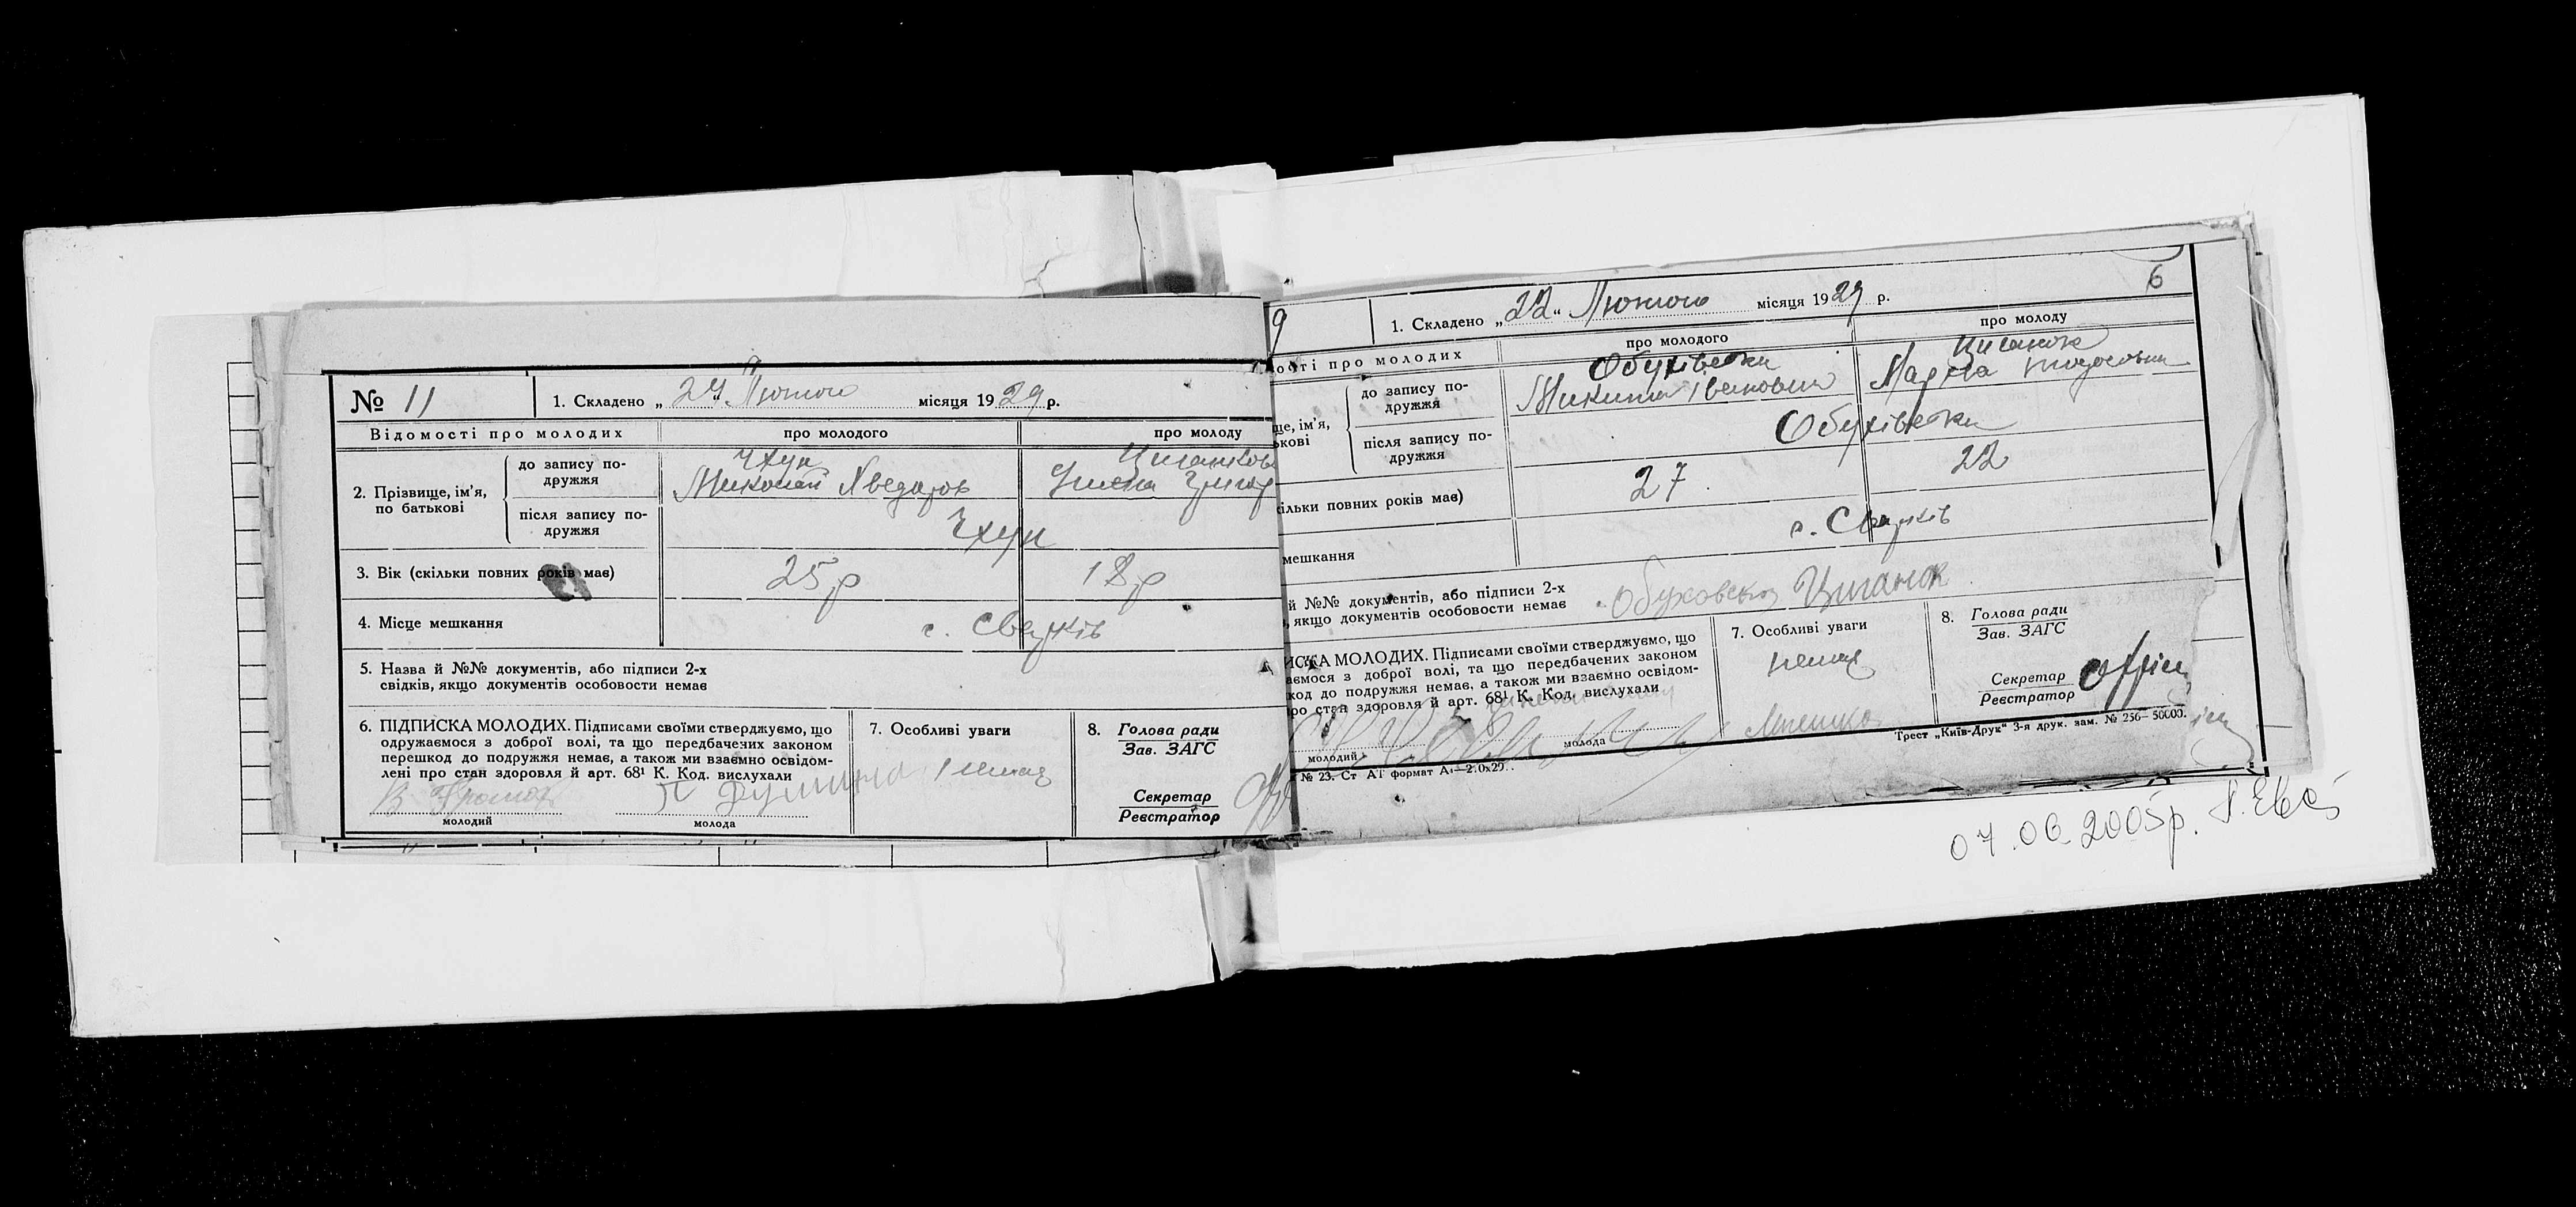 № 11
1. Складено „ 24 “ Лютого місяця 1929 р.
Відомості про молодих
про молодого
про молоду
2. Прізвище, ім'я, по батькові
до запису подружжя
Чхун
Миколай Хведоров
Циганков
Григор
після запису подружжя
Чхун
3. Вік (скільки повних років має)
25 р
18 р
4. Місце мешкання
с. Сварків
5. Назва й №№ документів, або підписи 2-х
свідків, якщо документів особовости немає
6. ПІДПИСКА МОЛОДИХ. Підписами своїми стверджуємо, що
одружаємося з доброї волі, та що передбачених законом
перешкод до подружжя немає, а також ми взаємно освідом-
лені про стан здоровля й арт. 68¹ К. Код. вислухали
молодий
молода
7. Особливі уваги
немає
8. Голова ради
Зав. ЗАГС
Секретар
Реєстратор
9
1. Складено „ 22 “ Лютого місяця 1929 р.
6
ості про молодих
про молодого
про молоду
ще, ім'я,
ькові
до запису по-
дружжя
Микита Іванович
Циганок
після запису по-
дружжя
кільки повних років має)
27
22
мешкання
с. Сварків
й №№ документів, або підписи 2-х
, якщо документів особовости немає
Циганок
ИСКА МОЛОДИХ. Підписами своїми стверджуємо, що
аємося з доброї волі, та що передбачених законом
код до подружжя немає, а також ми взаємно освідом-
ро стан здоровля й арт. 68¹ К. Код. вислухали
молодий
молода
7. Особливі уваги
немає
8. Голова ради
Зав. ЗАГС
Секретар
Реєстратор
№ 23. Ст А1 формат
Трест „Київ-Друк“ 3-я друк. зам. № 256—50000.
07.06.2005р.